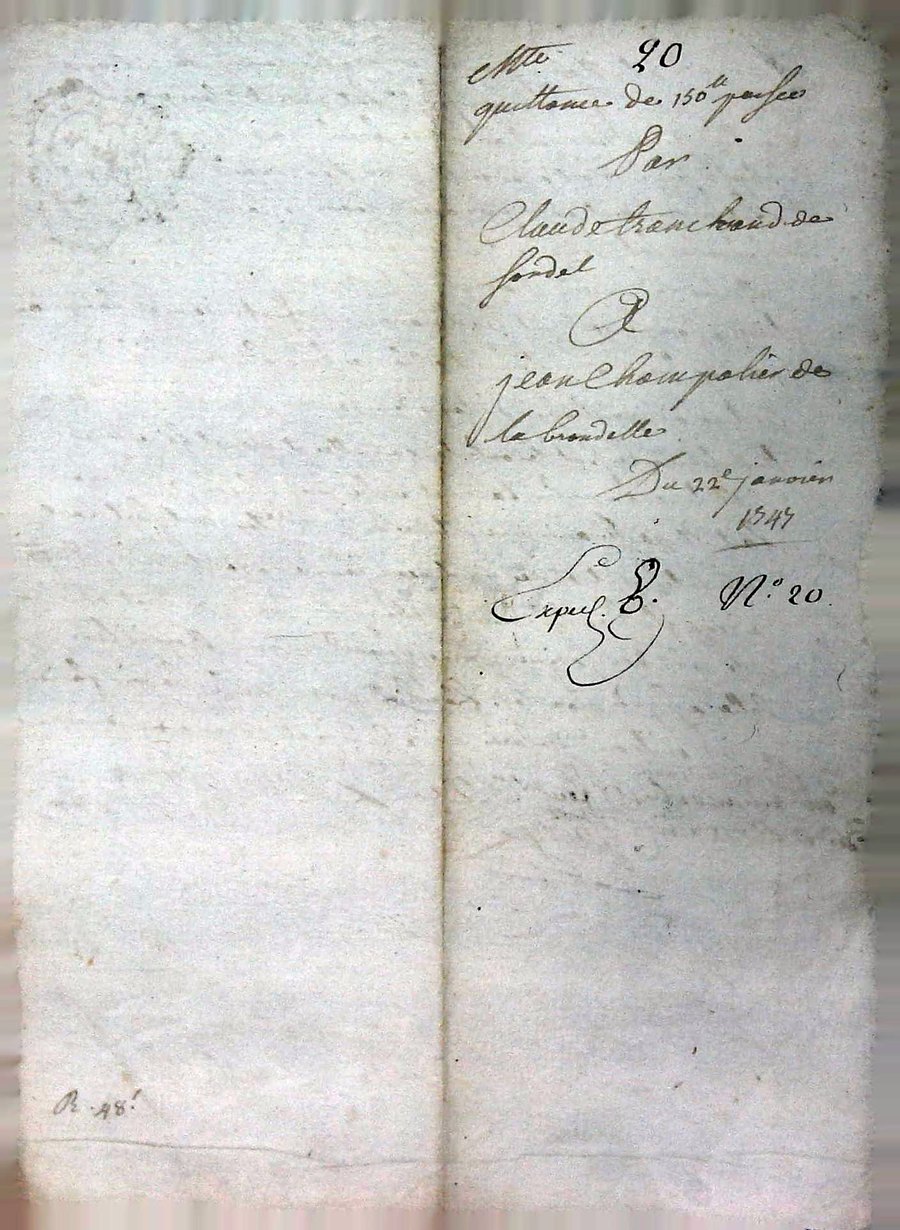 20
quittance de 150ᵗᵗ passée
Par
Claude tranchand de
Sordel
A
jean Champolier de
la brondelle
Du 22ᵉ janvier
1747
Expu. 8. N.º 20
R. 48.ˢ